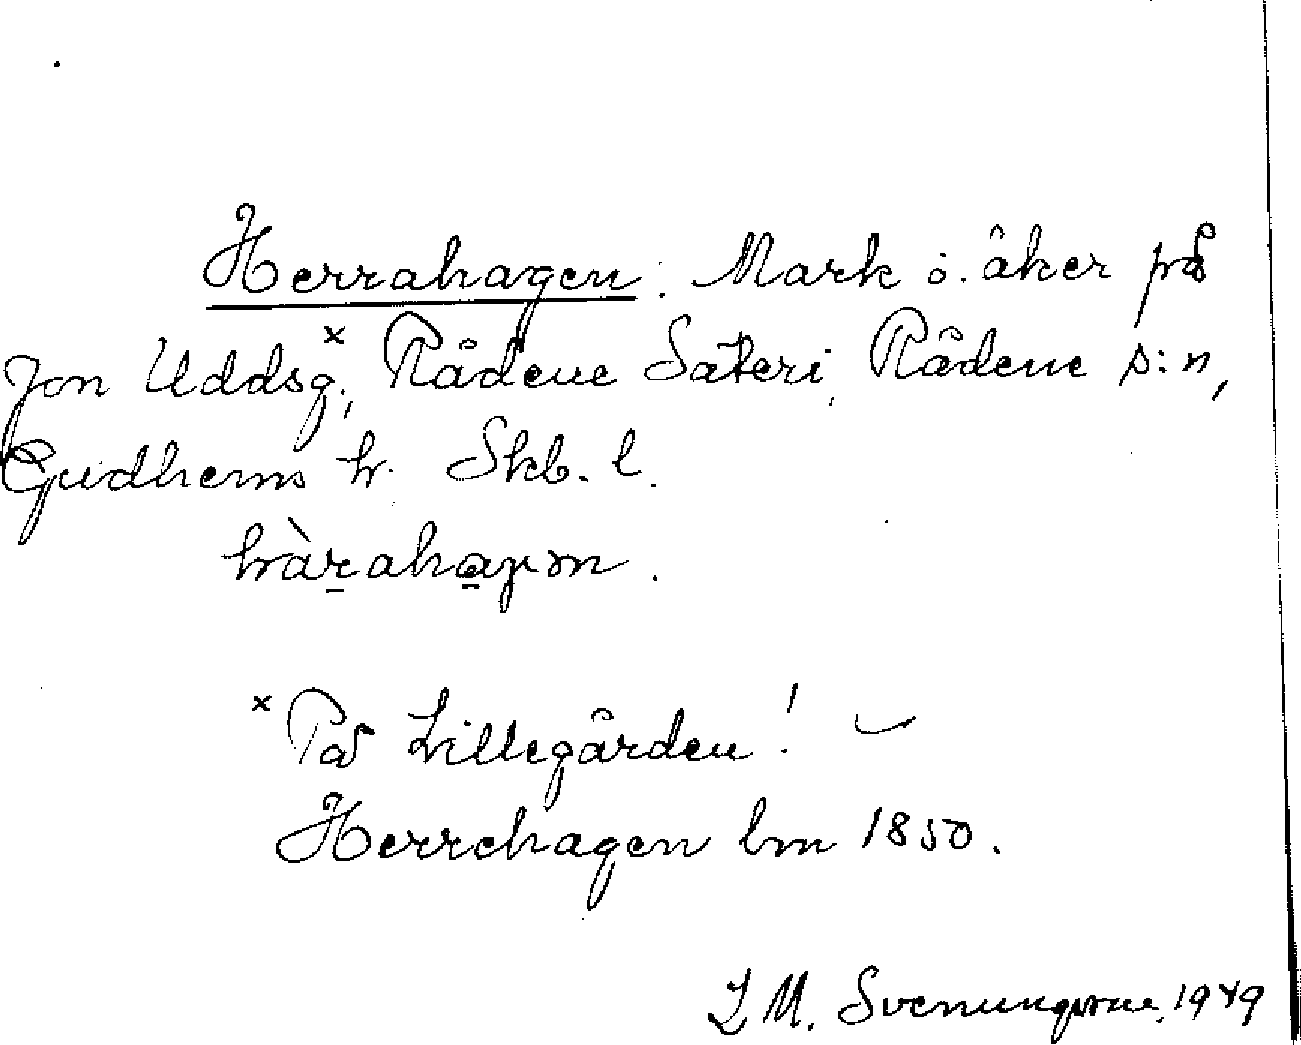 Herrahagen: Mark o. åker på
Jon Uddsg.,ˣ Rådene Säteri, Rådene s:n,
Gudhems h. Skb. l.
hàrahagən.
ˣ På Lillegården!
Herrehagen lm 1850.
Svenungsson 1949